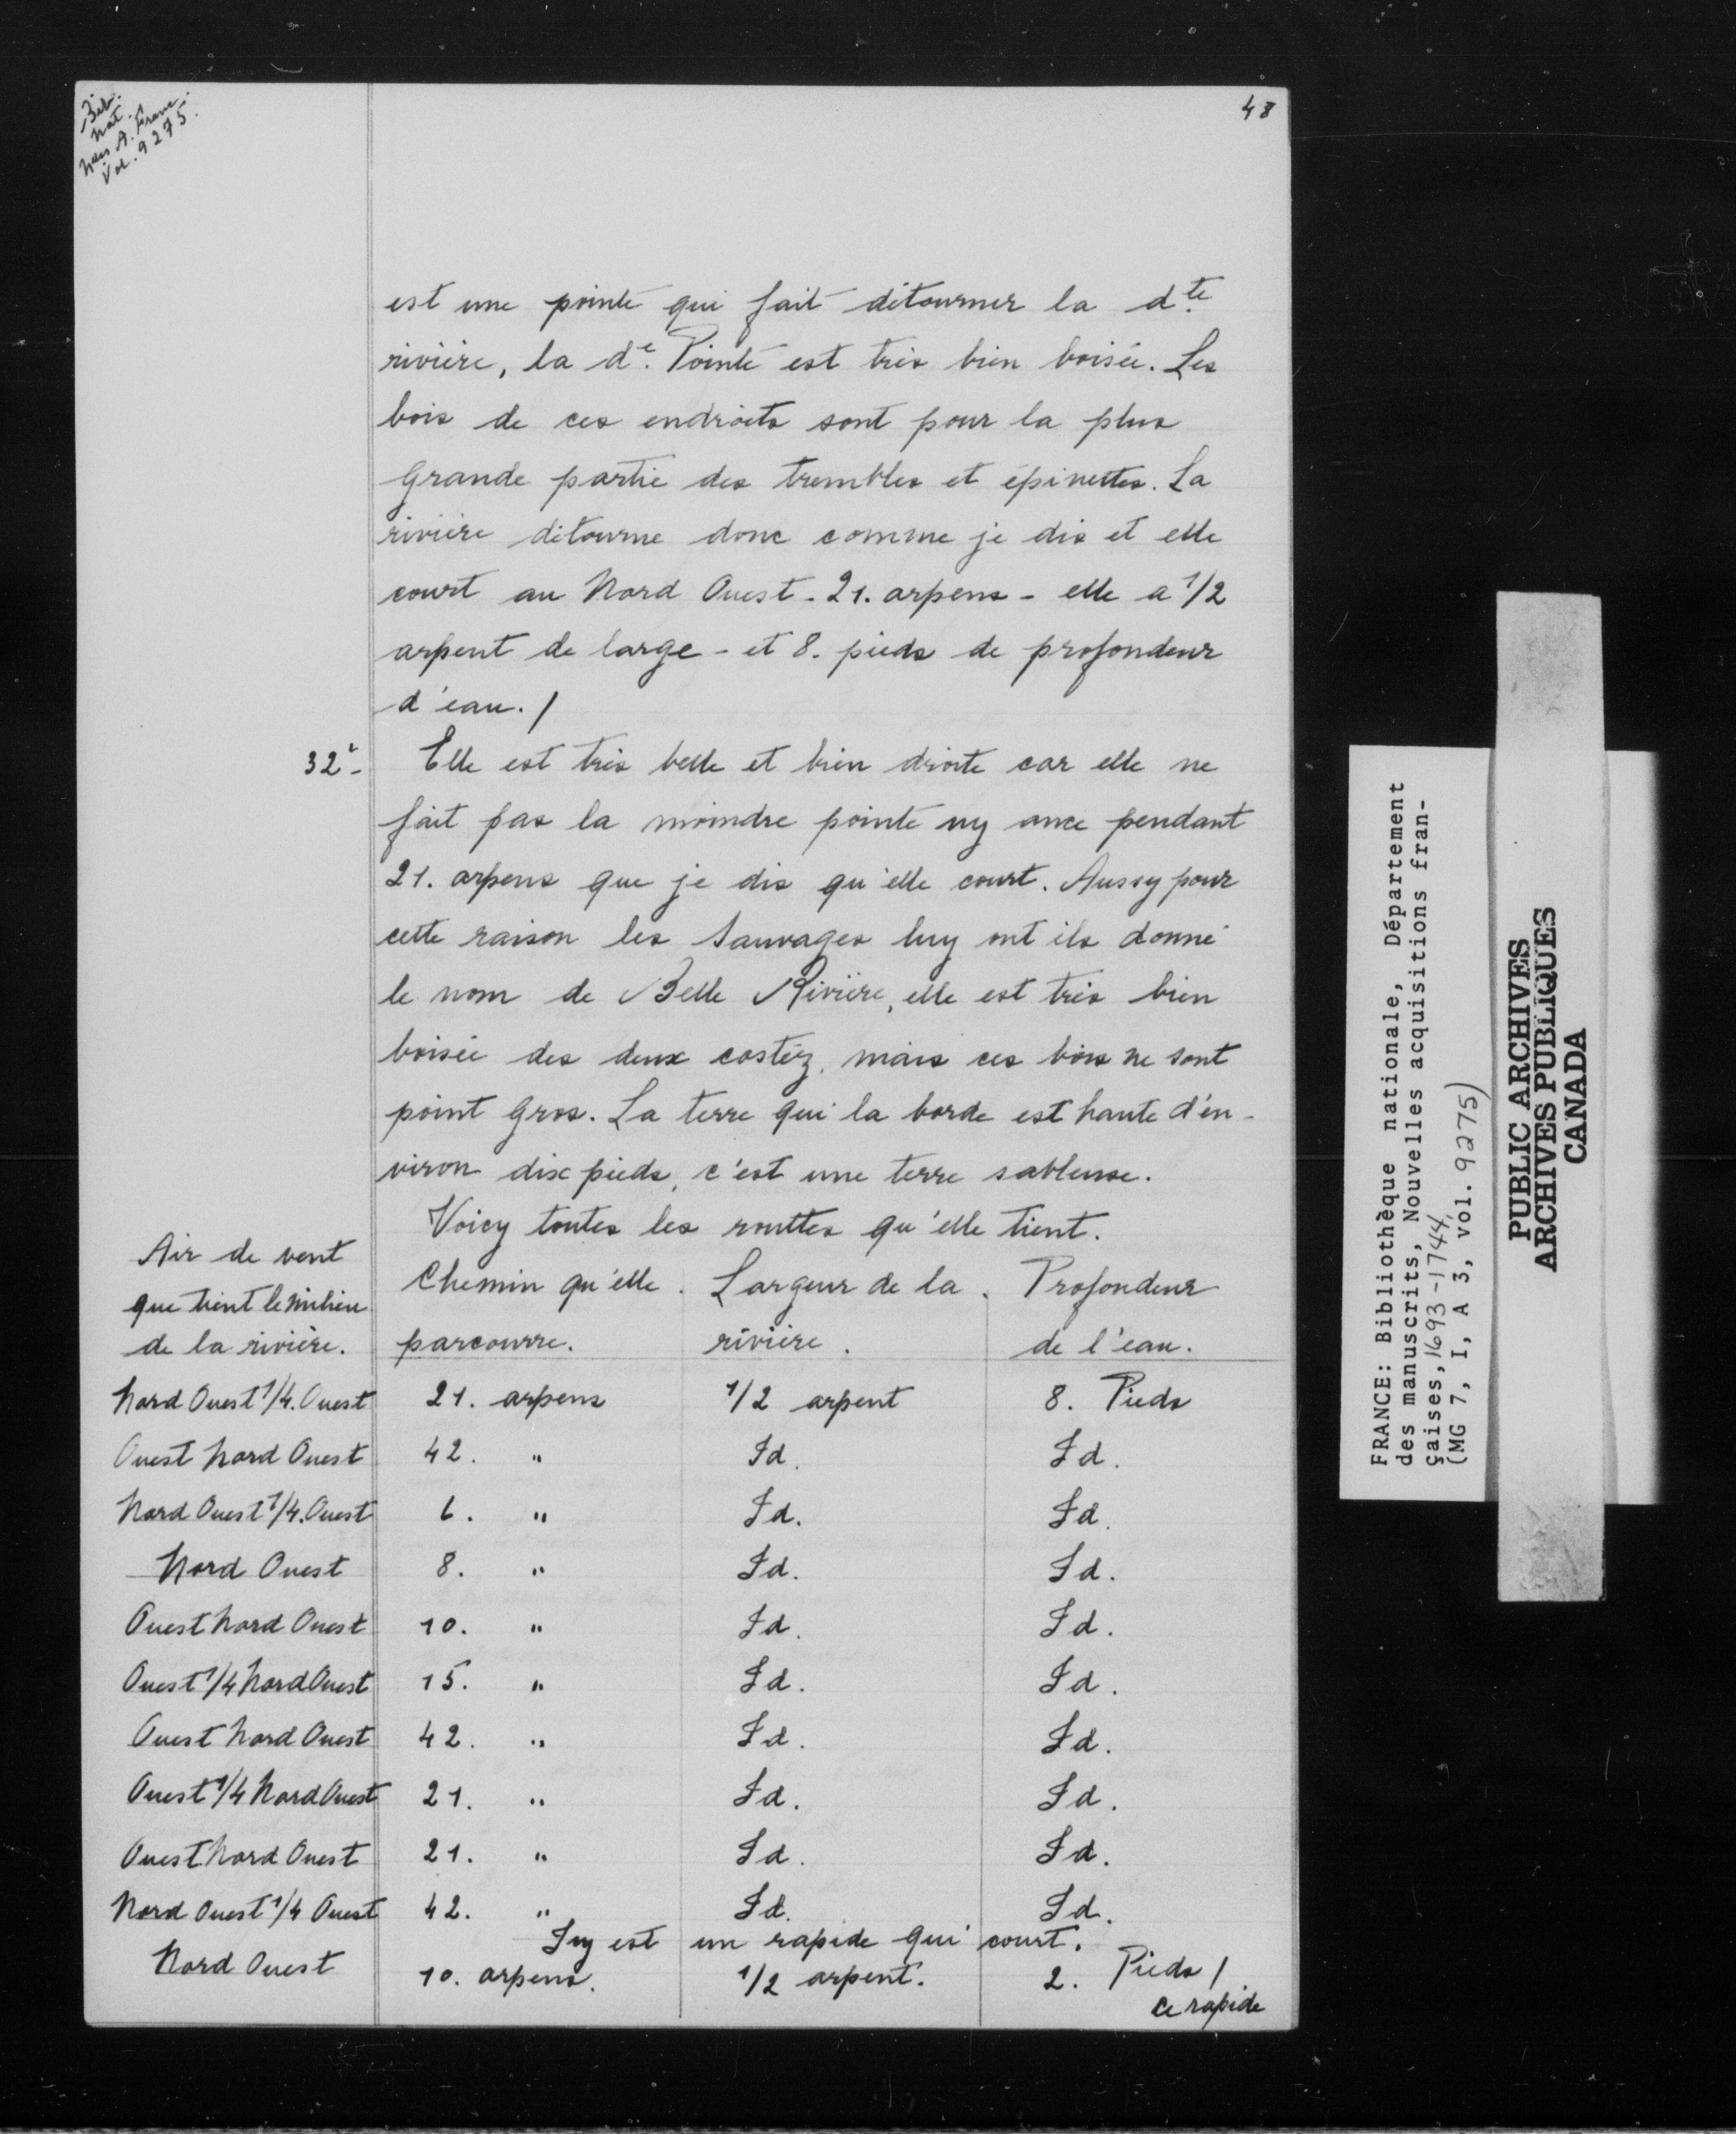 Bib.
Nat.
Nees A. Franc.
Vol. 9275.
48
est une pointe qui fait détourner la d.te
rivière, la d.e Pointe est très bien boisée. Les
bois de ces endroits sont pour la plus
Grande partie des trembles et épinettes. La
rivière détourne donc comme je dis et elle
court au Nord Ouest - 21. arpens - elle a 1/2
arpent de large - et 8. pieds de profondeur
d'eau. /
32e - Elle est très belle et bien droite car elle ne
fait pas la moindre pointe ny ance pendant
21. arpens que je dis qu'elle court. Aussy pour
cette raison les Sauvages luy ont ils donné
le nom de Belle Rivière, elle est très bien
boisée des deux costéz, mais ces bois ne sont
point Gros. La terre qui la borde est haute d'en-
viron dix pieds, c'est une terre sableuse.
Voicy toutes les routtes qu'elle tient.
Air de vent
que tient le milieu
de la rivière.
Chemin qu'elle
parcourre.
Largeur de la
rivière.
Profondeur
de l'eau.
Nord Ouest 1/4. Ouest 21. arpens 1/2 arpent 8. Pieds
Ouest Nord Ouest 42. " Id. Id.
Nord Ouest 1/4. Ouest 6. " Id. Id.
Nord Ouest 8. " Id. Id.
Ouest Nord Ouest 10. " Id. Id.
Ouest 1/4 Nord Ouest 15. " Id. Id.
Ouest Nord Ouest 42. " Id. Id.
Ouest 1/4 Nord Ouest 21. " Id. Id.
Ouest Nord Ouest 21. " Id. Id.
Nord Ouest 1/4 Ouest 42. " Id. Id.
Icy est un rapide qui court.
Nord Ouest 10. arpens. 1/2 arpent. 2. Pieds /
ce rapide
FRANCE: Bibliothèque nationale, Département
des manuscrits, Nouvelles acquisitions fran-
çaises, 1693-1744,
(MG 7, I, A 3, vol. 9275)
PUBLIC ARCHIVES
ARCHIVES PUBLIQUES
CANADA